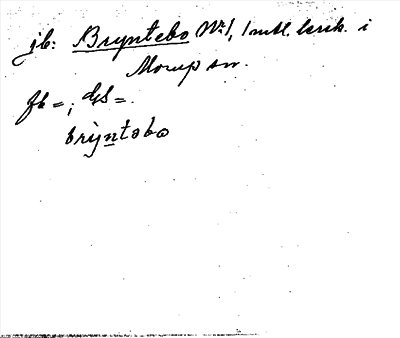 jb: Bryntebo Nr 1, 1 mtl. krsk. i
Morup sn.
fb =; dgS =.
bry̱ntəbo